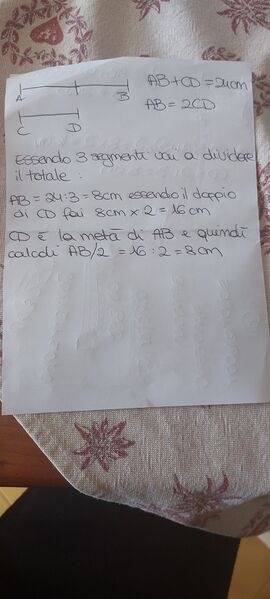 A B AB+CD = 24cm
C D AB = 2CD
Essendo 3 segmenti vai a dividere
il totale :
AB = 24:3 = 8cm essendo il doppio
di CD fai 8cm x 2 = 16cm
CD è la metà di AB e quindi
calcoli AB/2 = 16:2 = 8cm